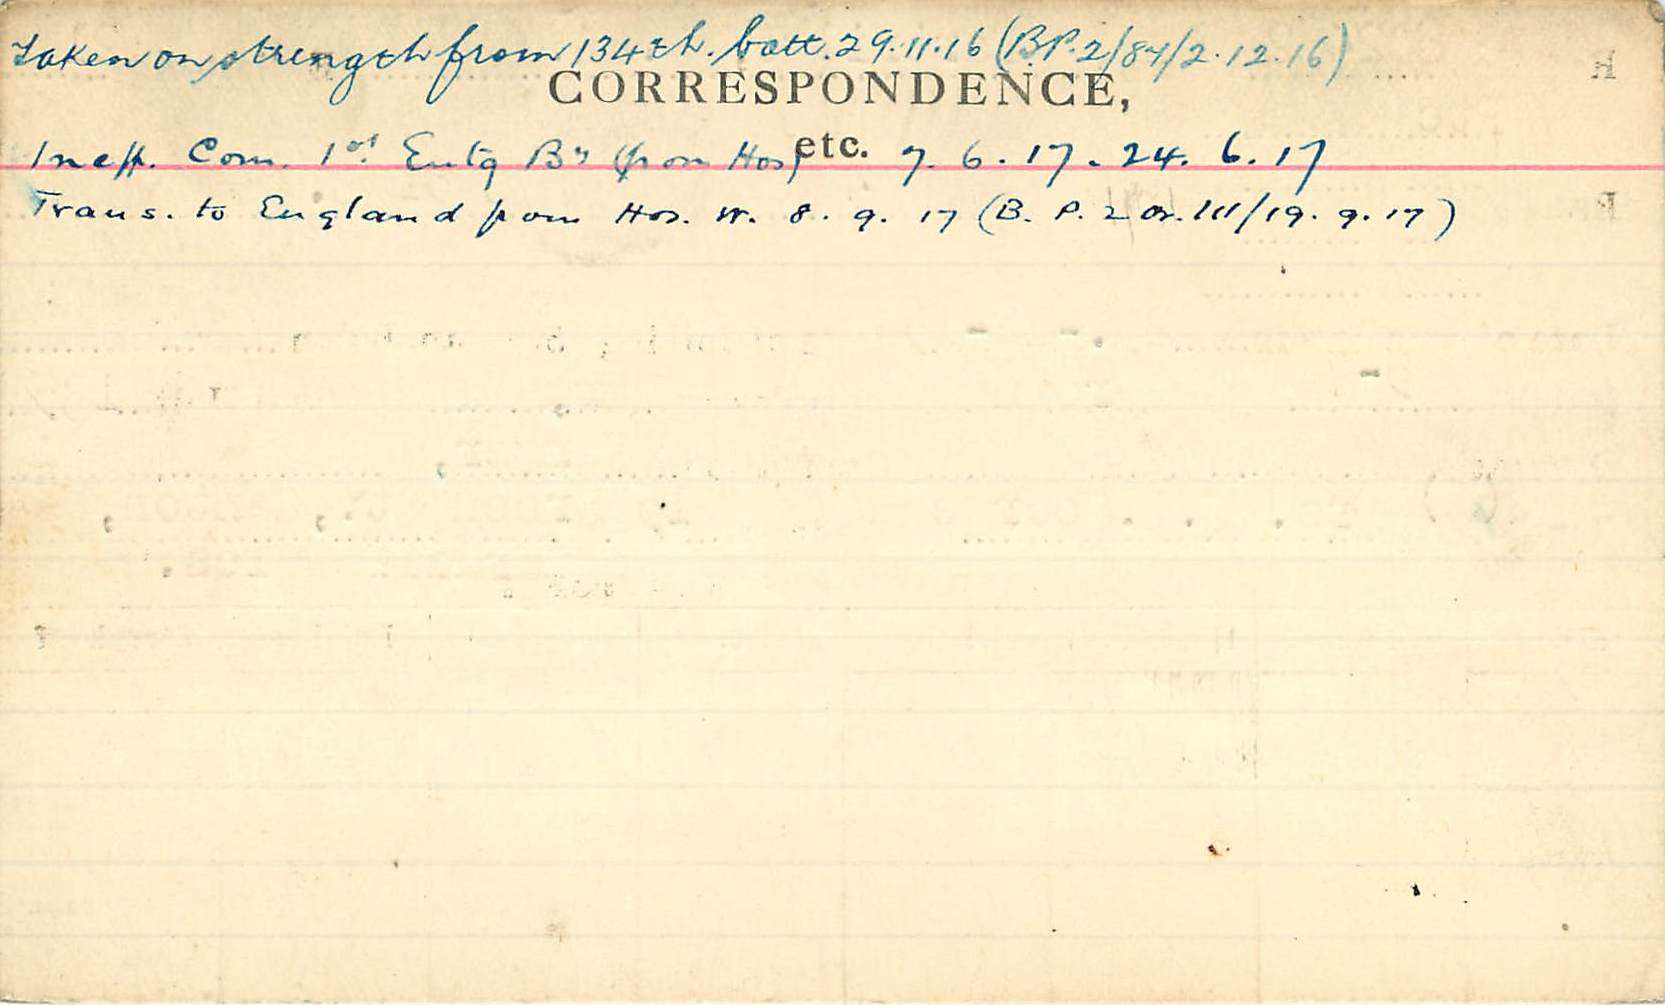 Taken on strength from 134th. batt. 29.11.16 (B.P. 2/84/2.12.16)
CORRESPONDENCE,
etc.
Ineff. Com. 1st Entg Bn (from Hos) 7.6.17. 24.6.17
Trans. to England from Hos. W. 8.9.17 (B.P. 2 Or. 111/19.9.17)